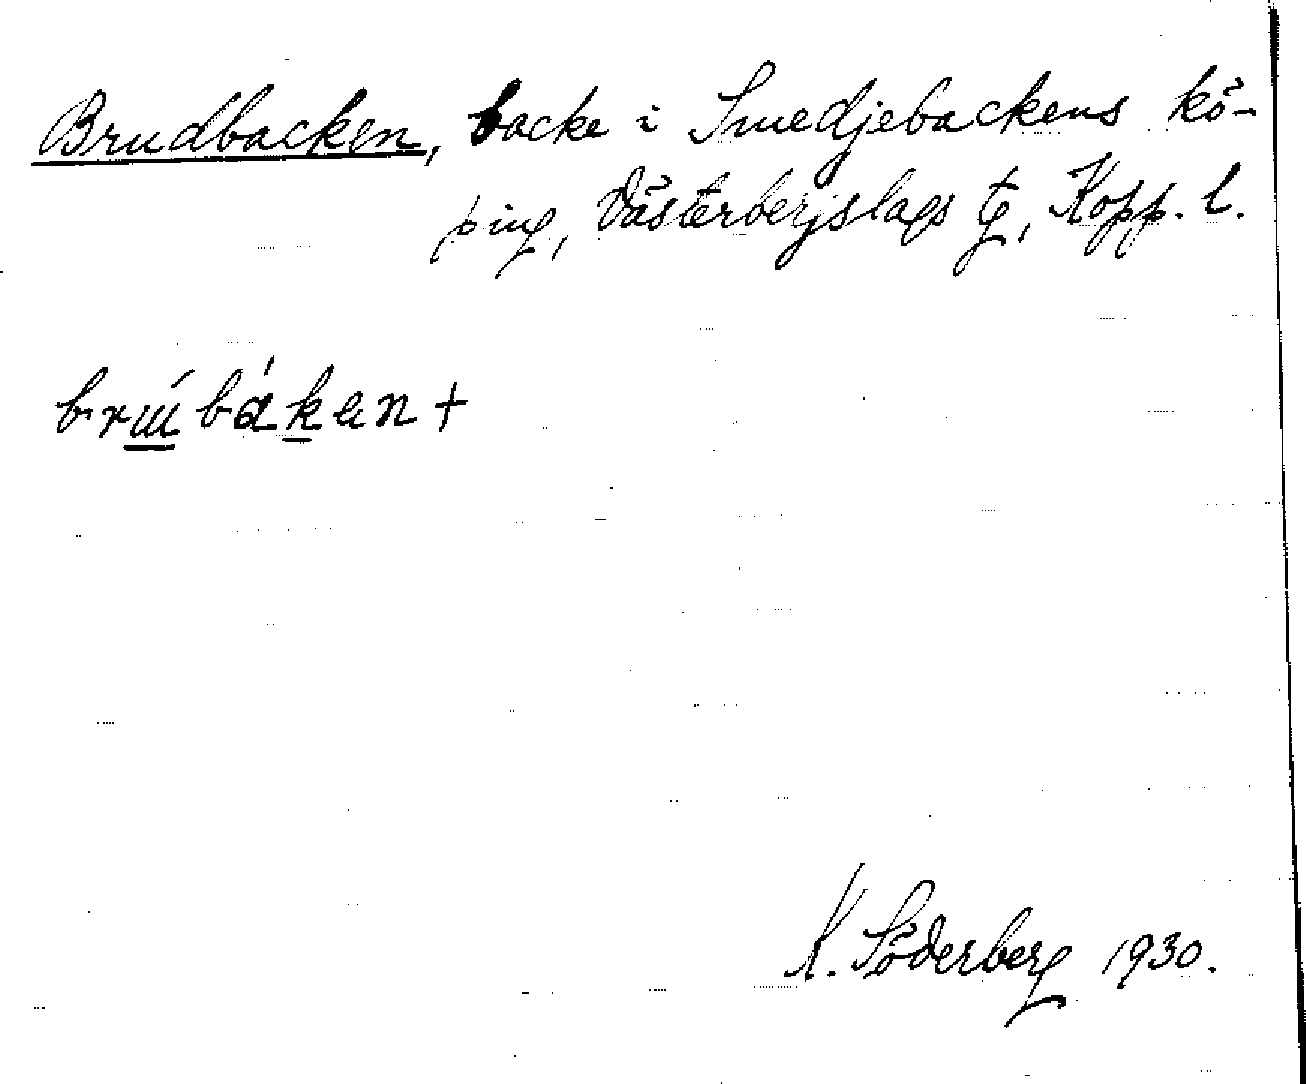 Brudbacken, backe i Smedjebackens kö-
ping, Västerbergslags tg, Kopp. l.
brúbákan +
K. Söderberg 1930.